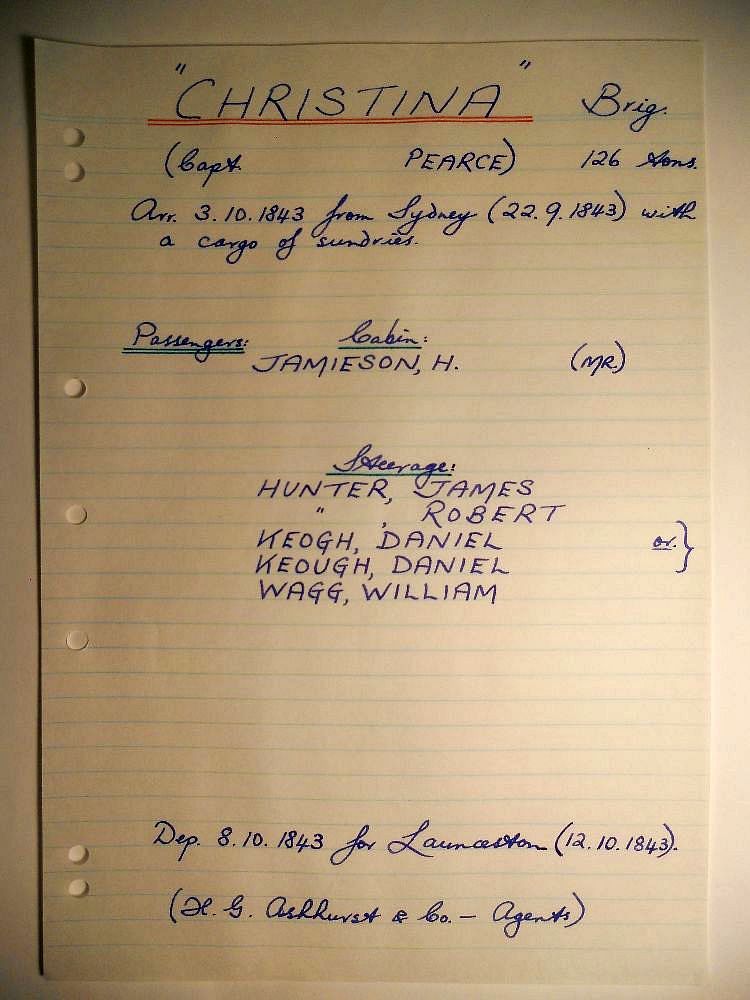 "CHRISTINA" Brig.
(Capt. PEARCE) 126 tons.
Arr. 3.10.1843 from Sydney (22.9.1843) with
a cargo of sundries.
Passengers: Cabin:
JAMIESON, H. (MR.)
Steerage:
HUNTER, JAMES
" , ROBERT
KEOGH, DANIEL or. }
KEOUGH, DANIEL
WAGG, WILLIAM
Dep. 8.10.1843 for Launceston (12.10.1843).
(H. G. Ashhurst & Co. - Agents)